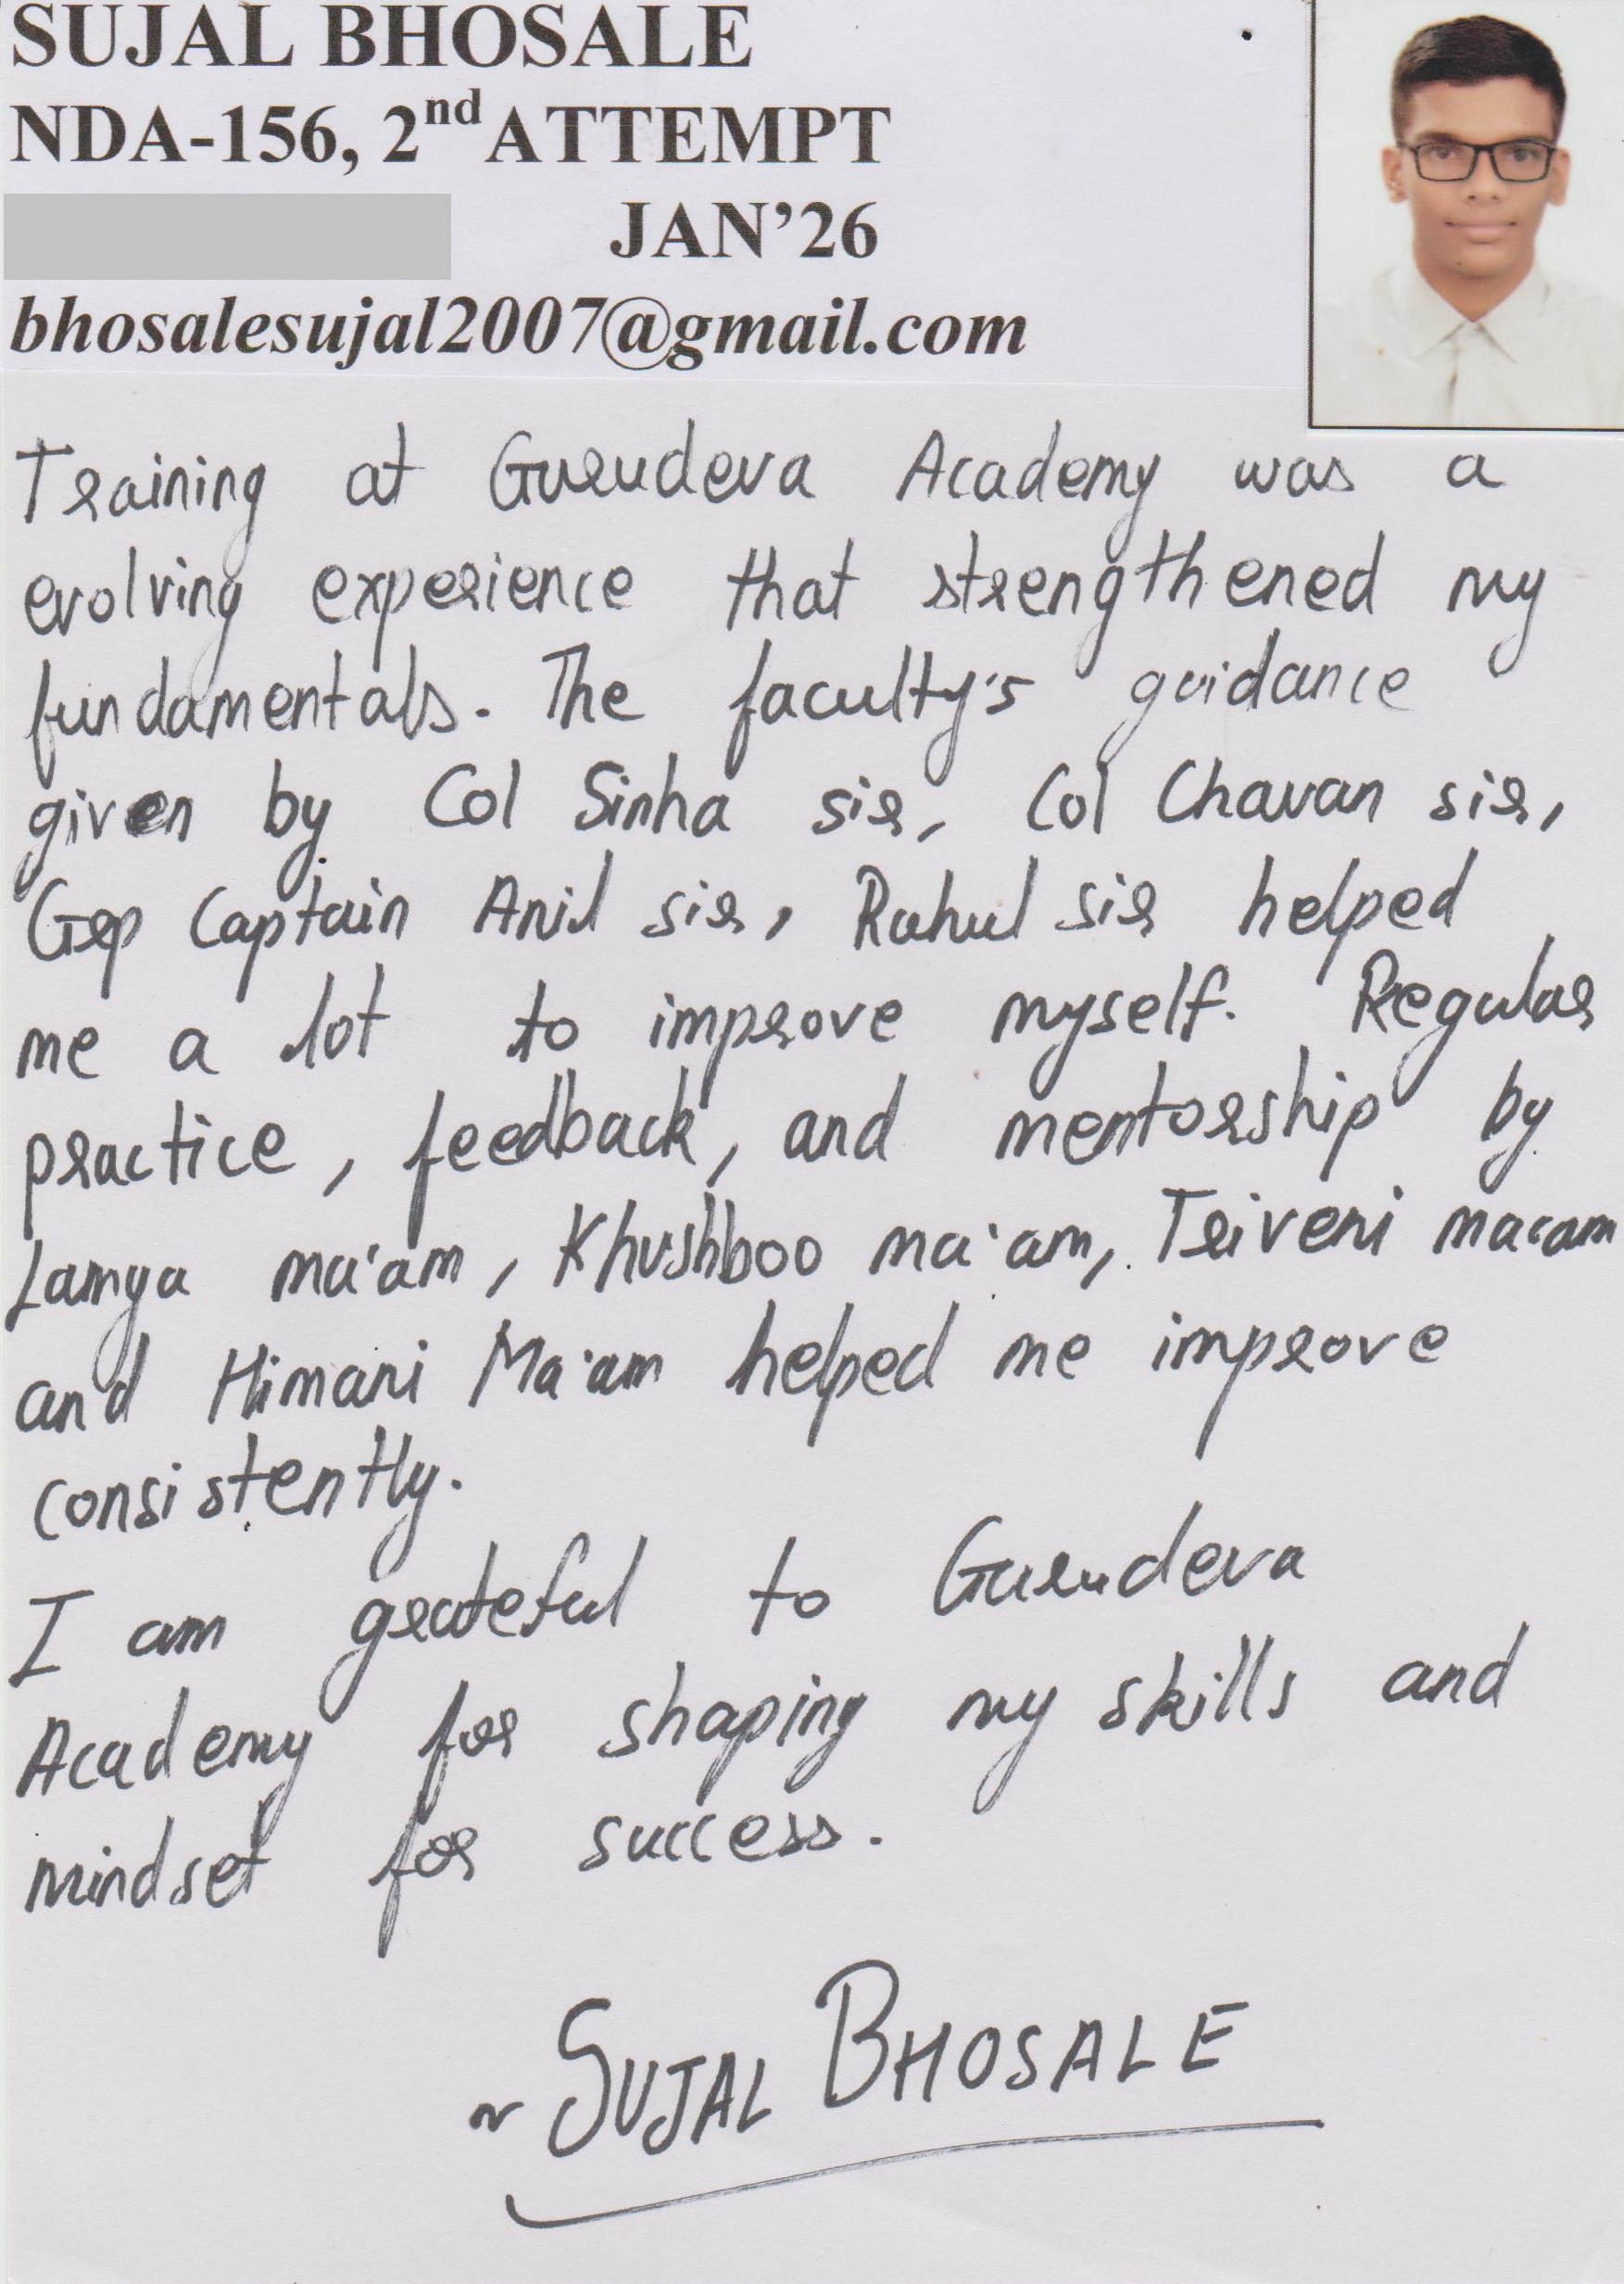 SUJAL BHOSALE
NDA-156, 2nd ATTEMPT
JAN’26
bhosalesujal2007@gmail.com
Training at Gurudeva Academy was a
evolving experience that strengthened my
fundamentals. The faculty's guidance
given by Col Sinha sir, Col Chavan sir,
Grp Captain Anil sir, Rahul sir helped
me a lot to improve myself. Regular
practice, feedback, and mentorship by
Lamya ma'am, Khushboo ma'am, Triveni ma'am
and Himani Ma'am helped me improve
consistently.
I am grateful to Gurudeva
Academy for shaping my skills and
mindset for success.
~ SUJAL BHOSALE